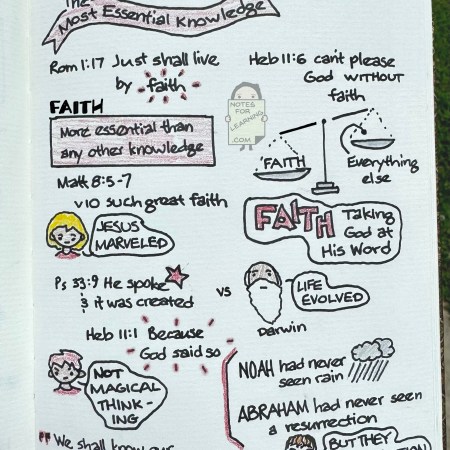 The
Most Essential Knowledge
Rom 1:17 Just shall live
by faith
Heb 11:6 can't please
God WITHOUT
faith
FAITH
More essential than
any other knowledge
NOTES
FOR
LEARNING
.COM
FAITH
Everything
else
Matt 8:5-7
v10 such great faith
JESUS
MARVELED
FAITH Taking
God at
His Word
Ps 33:9 He spoke
& it was created
vs
LIFE
EVOLVED
Darwin
Heb 11:1 Because
God said so
NOT
MAGICAL
THINK-
ING
NOAH had never
seen rain
ABRAHAM had never seen
a resurrection
BUT THEY
"We shall know our